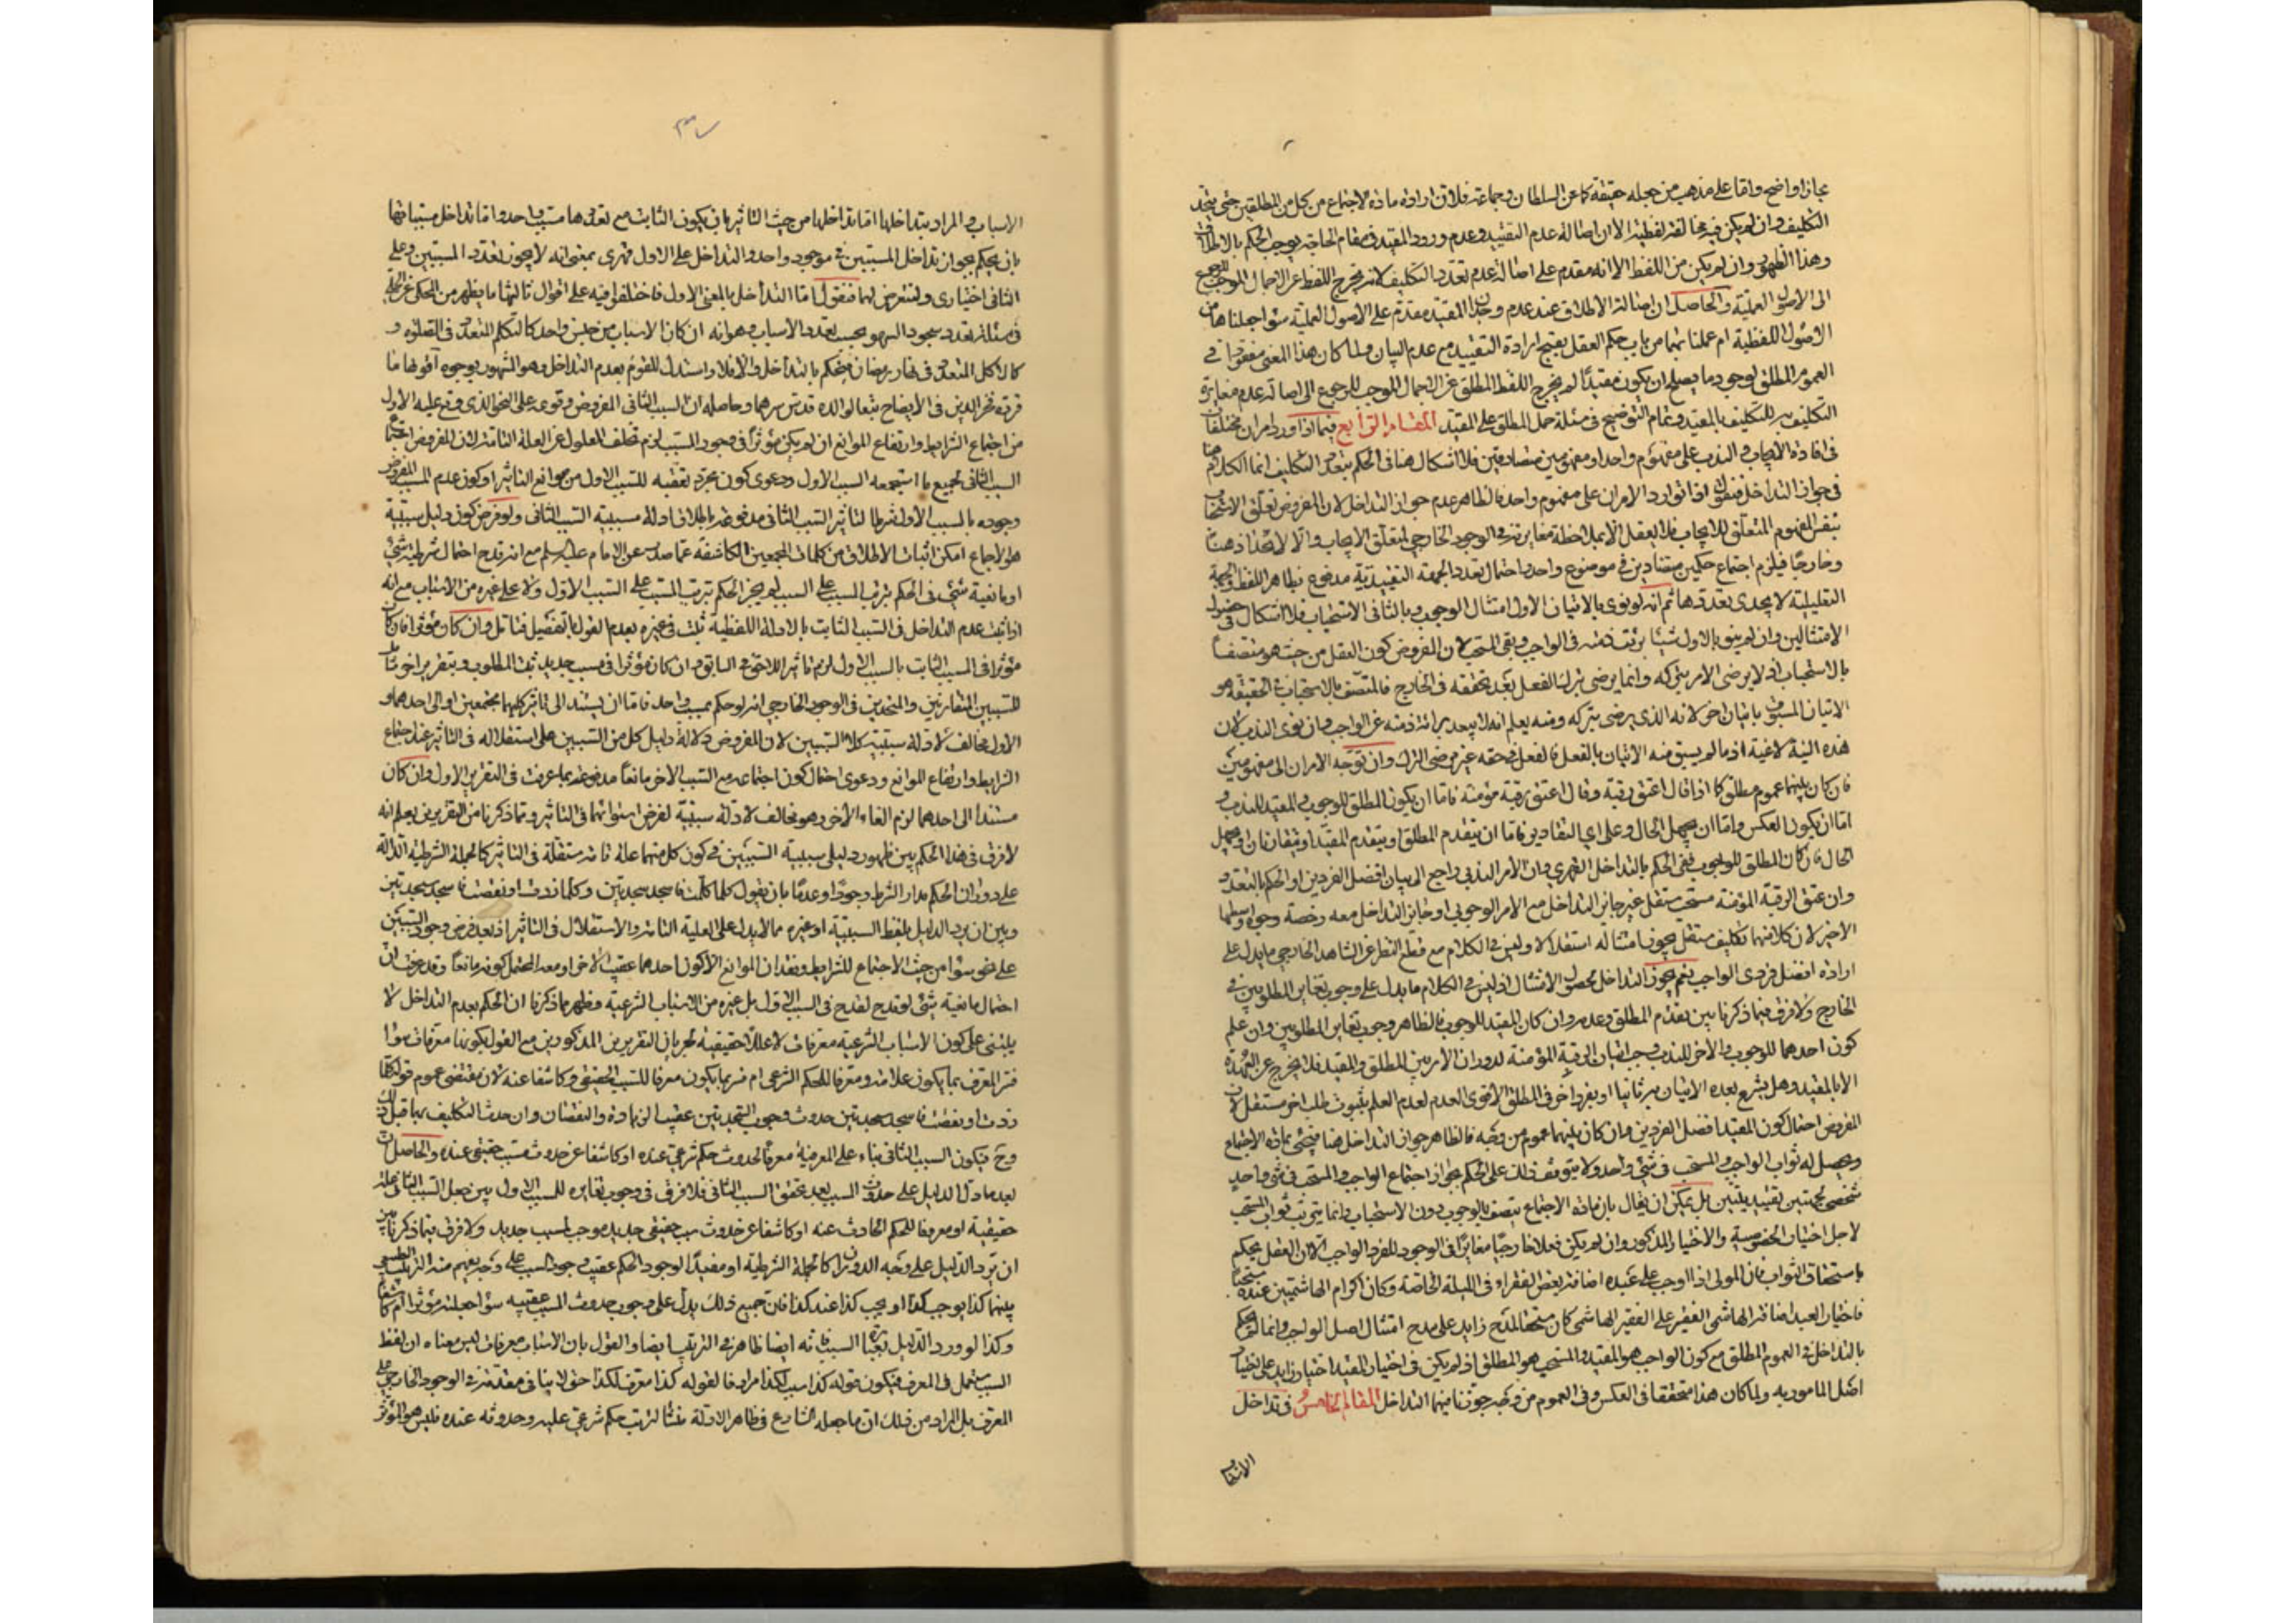 مجازا واضح واما على مذهب من جعله حقيقة كما عن السلطان وجماعة فلان ارادة مادة الاجتماع من كل من المطلقين حتى يتحد
التكليف وان لم يكن فيه مخالفة لفظية الا ان اصالة عدم التقييد وعدم ورود المقيد في مقام الحاجة يوجب الحكم بالاطلاق
وهذا الظهور وان لم يكن من اللفظ الا انه مقدم على اصالة عدم تعدد التكليف لانه يخرج اللفظ عن الاجمال الموجب للرجوع
الى الاصول العملية والحاصل ان اصالة الاطلاق عند عدم وجدان المقيد مقدم على الاصول العملية سواء جعلناها من
الاصول اللفظية ام عملنا بهما من باب حكم العقل بقبح ارادة التقييد مع عدم البيان ولما كان هذا المعنى مفقودا في
العموم المطلق لوجود ما يصلح ان يكون مقيدا لم يخرج اللفظ المطلق عن الاجمال الموجب للرجوع الى اصالة عدم مغايرة
التكليف به للتكليف بالمقيد وتمام التوضيح في مسئلة حمل المطلق على المقيد المقام الرابع فيما اذا ورد امران مختلفان
في افادة الايجاب والندب على مفهوم واحد او مفهومين متصادقين فلا اشكال هنا في الحكم بتعدد التكليف انما الكلام هنا
في جواز التداخل فنقول اذا توارد الامران على مفهوم واحد فالظاهر عدم جواز التداخل لان المفروض تعلق الاستحباب
بنفس المفهوم المتعلق للايجاب فلا يعقل الا بملاحظة مغايرته في الوجود الخارجي لمتعلق الايجاب والا لاتحدا ذهنا
وخارجا فيلزم اجتماع حكمين متضادين في موضوع واحد واحتمال تعدد الجهة التقييدية مدفوع بظاهر اللفظ والجهة
التعليلية لا يجدى تعددها ثم انه لو نوى بالاتيان الاول امتثال الوجوب وبالثاني الاستحباب فلا اشكال في حصول
الامتثالين وان لم ينو بالاول شيئا برئت ذمته في الواجب وبقى المستحب لان المفروض كون الفعل من حيث هو متصفا
بالاستحباب اذ لا يرضى الامر بتركه وانما يرضى بترك الفعل بعد تحققه في الخارج فالمتصف بالاستحباب في الحقيقة هو
الاتيان المسبوق باتيان اخر لانه الذى يرضى بتركه ومنه يعلم انه لا يبعد برائة ذمته عن الواجب وان نوى الندب لان
هذه النية لاغية اذ ما لم يسبق منه الاتيان بالفعل فالفعل في حقه غير مرضى الترك وان توجه الامران الى مفهومين
فان كان بينهما عموم مطلق كما اذا قال اعتق رقبة وقال اعتق رقبة مؤمنة فاما ان يكون المطلق للوجوب والمقيد للندب و
اما ان يكون العكس واما ان يجهل الحال وعلى اي التقادير فاما ان يتقدم المطلق او يتقدم المقيد او يتقارنان او يجهل
الحال فان كان المطلق للوجوب ففى الحكم بالتداخل القهرى وان الامر الندبى راجع الى بيان افضل الفردين او الحكم بالتعدد
وان عتق الرقبة المؤمنة مستحب مستقل غير جائز التداخل مع الامر الوجوبى او جائز التداخل معه رخصة وجوه اوسطها
الاخير لان كلا منهما تكليف مستقل يجوز امتثاله استقلالا وليس في الكلام مع قطع النظر عن الشاهد الخارجى ما يدل على
ارادة افضل فردى الواجب نعم يجوز التداخل لحصول الامتثال اذ ليس في الكلام ما يدل على وجوب تغاير المطلوبين في
الخارج ولا فرق فيما ذكرنا بين تقدم المطلق وعدمه وان كان المقيد للوجوب فالظاهر وجوب تغاير المطلوبين وان علم
كون احدهما للوجوب والاخر للندب وجب اتيان الرقبة المؤمنة لدوران الامر بين المطلق والمقيد فلا يخرج عن العهدة
الا بالمقيد وهل يشرع بعده الاتيان به ثانيا او بفرد اخر في المطلق الاقوى العدم لعدم العلم بثبوت طلب اخر مستقل لان
المفروض احتمال كون المقيد افضل الفردين وان كان بينهما عموم من وجه فالظاهر جواز التداخل هنا فيجتزى بمادة الاجتماع
ويحصل له ثواب الواجب والمستحب في شئ واحد ولا يتوقف ذلك على الحكم بجواز اجتماع الواجب والمستحب في شئ واحد
شخصى بجهتين تقييديتين بل يمكن ان يقال بان مادة الاجتماع يتصف بالوجوب دون الاستحباب وانما يترتب ثواب المستحب
لاجل اختيار الخصوصية والاختيار المذكور وان لم يكن فعلا خارجيا مغايرا في الوجود للفرد الواجب الا ان العقل يحكم
باستحقاق الثواب فان المولى اذا اوجب على عبده اضافة بعض الفقراء في الليلة الخاصة وكان اكرام الهاشميين عنده مستحبا
فاختيار العبد اضافة الهاشمى الفقير على الفقير الهاشمى كان مستحقا لمدح زايد على مدح امتثال اصل الواجب وانما لم يحكم
بالتداخل في العموم المطلق مع كون الواجب هو المقيد والمستحب هو المطلق اذ لم يكن في اختيار المقيد اختيار زايد على اختيار
اصل المامور به ولما كان هذا متحققا في العكس وفي العموم من وجه جوزنا فيهما التداخل المقام الخامس في تداخل
الاسباب
الاسباب والمراد بتداخلها اما تداخلها من حيث التاثير بان يكون الثابت مع تعددها مسببا واحدا واما تداخل مسبباتها
بان يحكم بجواز تداخل المسببين في موجود واحد والتداخل على الاول قهرى بمعنى انه لا يجوز تعدد المسببين وعلى
الثاني اختيارى ولنتعرض لهما فنقول اما التداخل بالمعنى الاول فاختلفوا فيه على اقوال ثالثها ما يظهر من المحكى عن الحلى
في مسئلة تعدد سجود السهو بحسب تعدد الاسباب وهو انه ان كان الاسباب من جنس واحد كالتكلم المتعدد في الصلوة و
كالاكل المتعدد في نهار رمضان فيحكم بالتداخل والا فلا واستدل للقوم بعدم التداخل وهو المشهور بوجوه اقواها ما
قرره فخر الدين في الايضاح تبعا لوالده قدس سرهما وحاصله ان السبب الثانى المفروض وقوعه على النحو الذى وقع عليه الاول
من اجتماع الشرايط وارتفاع الموانع ان لم يكن مؤثرا في وجود المسبب لزم تخلف المعلول عن العلة التامة لان المفروض استجماع
السبب الثانى لجميع ما استجمعه السبب الاول ودعوى كون مجرد تعقبه للسبب الاول من موانع التاثير او كون عدم المسبب المفروض
وجوده بالسبب الاول شرطا لتاثير السبب الثانى مدفوعة باطلاق ادلة سببية السبب الثانى ولو فرض كون دليل سببيته
هو الاجماع امكن اثبات الاطلاق من كلمات المجمعين الكاشفة عما صدر عن الامام عليه السلم مع انه لو قدح احتمال شرطية شئ
او مانعية شئ في الحكم بترتب المسبب على السبب لم يجز الحكم بترتب المسبب على السبب الاول ولا على غيره من الاسباب مع انه
اذا ثبت عدم التداخل في السبب الثابت بالادلة اللفظية ثبت في غيره بعدم القول بالتفصيل فتامل وان كان مؤثرا فان كان
مؤثرا في المسبب الثابت بالسبب الاول لزم تاثير اللاحق في السابق وان كان مؤثرا في مسبب جديد ثبت المطلوب وبتقرير اخر شامل
للسببين المتقارنين والمتحدين في الوجود الخارجى انه لو حكم بمسبب واحد فاما ان يستند الى تاثير كليهما مجتمعين او الى احدهما و
الاول مخالف لادلة سببية كلا السببين لان المفروض دلالة دليل كل من السببين على استقلاله في التاثير عند اجتماع
الشرايط وارتفاع الموانع ودعوى احتمال كون اجتماعه مع السبب الاخر مانعا مدفوعة بما عرفت في التقرير الاول وان كان
مستندا الى احدهما لزم الغاء الاخر وهو مخالف لادلة سببيته لفرض استوائهما في التاثير ومما ذكرنا من التقريرين يعلم انه
لا فرق في هذا الحكم بين ظهور دليلى سببية السببين في كون كل منهما علة تامة مستقلة في التاثير كالجملة الشرطية الدالة
على دوران الحكم مدار الشرط وجودا وعدما بان يقول كلما تكلمت فاسجد سجدتين وكلما زدت او نقصت فاسجد سجدتين
وبين ان يرد الدليل بلفظ السببية او غيره مما لا يدل على العلية التامة والاستقلال في التاثير اذ بعد فرض وجود السببين
على نحو سواء من حيث الاجتماع للشرايط وفقدان الموانع الا كون احدهما عقيب الاخر او معه المحتمل كونه مانعا وقد عرفت ان
احتمال مانعية شئ لو قدح لقدح في السبب الاول بل غيره من الاسباب الشرعية وظهر مما ذكرنا ان الحكم بعدم التداخل لا
يبتنى على كون الاسباب الشرعية معرفات لا عللا حقيقية لجريان التقريرين المذكورين مع القول بكونها معرفات سواء
فسر المعرف بما يكون علامة ومعرفا للحكم الشرعى ام فسر بما يكون معرفا للسبب الحقيقى وكاشفا عنه لان مقتضى عموم قوله كلما
زدت او نقصت فاسجد سجدتين حدوث وجوب السجدتين عقيب الزيادة والنقصان وان حدث التكليف بها قبل ذلك
وح فيكون السبب الثانى بناء على المعرفية معرفا لحدوث حكم شرعى عنده او كاشفا عن حدوث مسبب حقيقى عنده والحاصل ان
بعد ما دل الدليل على حدوث المسبب بعد تحقق السبب الثانى فلا فرق في وجوب تغايره للمسبب الاول بين جعل السبب الثانى علة
حقيقية او معرفا للحكم الحادث عنه او كاشفا عن حدوث سبب حقيقى جديد موجب لمسبب جديد ولا فرق فيما ذكرنا بين
ان يرد الدليل على وجه الدوران كالجملة الشرطية او مفيدا لوجود الحكم عقيب وجود السبب على وجه يفهم منه الترتب الطبيعى
بينهما كذا يوجب كذا او يجب كذا عند كذا فان جميع ذلك يدل على وجوب حدوث المسبب عقيبه سواء جعلته مؤثرا ام كاشفا
وكذا لو ورد الدليل بعبارة السببية فانه ايضا ظاهر في الترتب ايضا والقول بان الاسباب معرفات ليس معناه ان لفظ
السبب مستعمل في المعرف فيكون قوله كذا سبب لكذا مرادفا لقوله كذا معرف لكذا حتى لا ينافي مقدمته في الوجود الخارجى على
المعرف بل المراد من ذلك ان ما جعله الشارع في ظاهر الادلة منشأ لترتب حكم شرعى عليه وحدوثه عنده فليس هو المؤثر